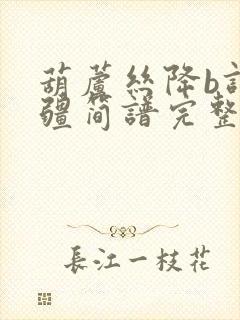 葫蘆絲降b
疆簡譜完整
長江一枝花